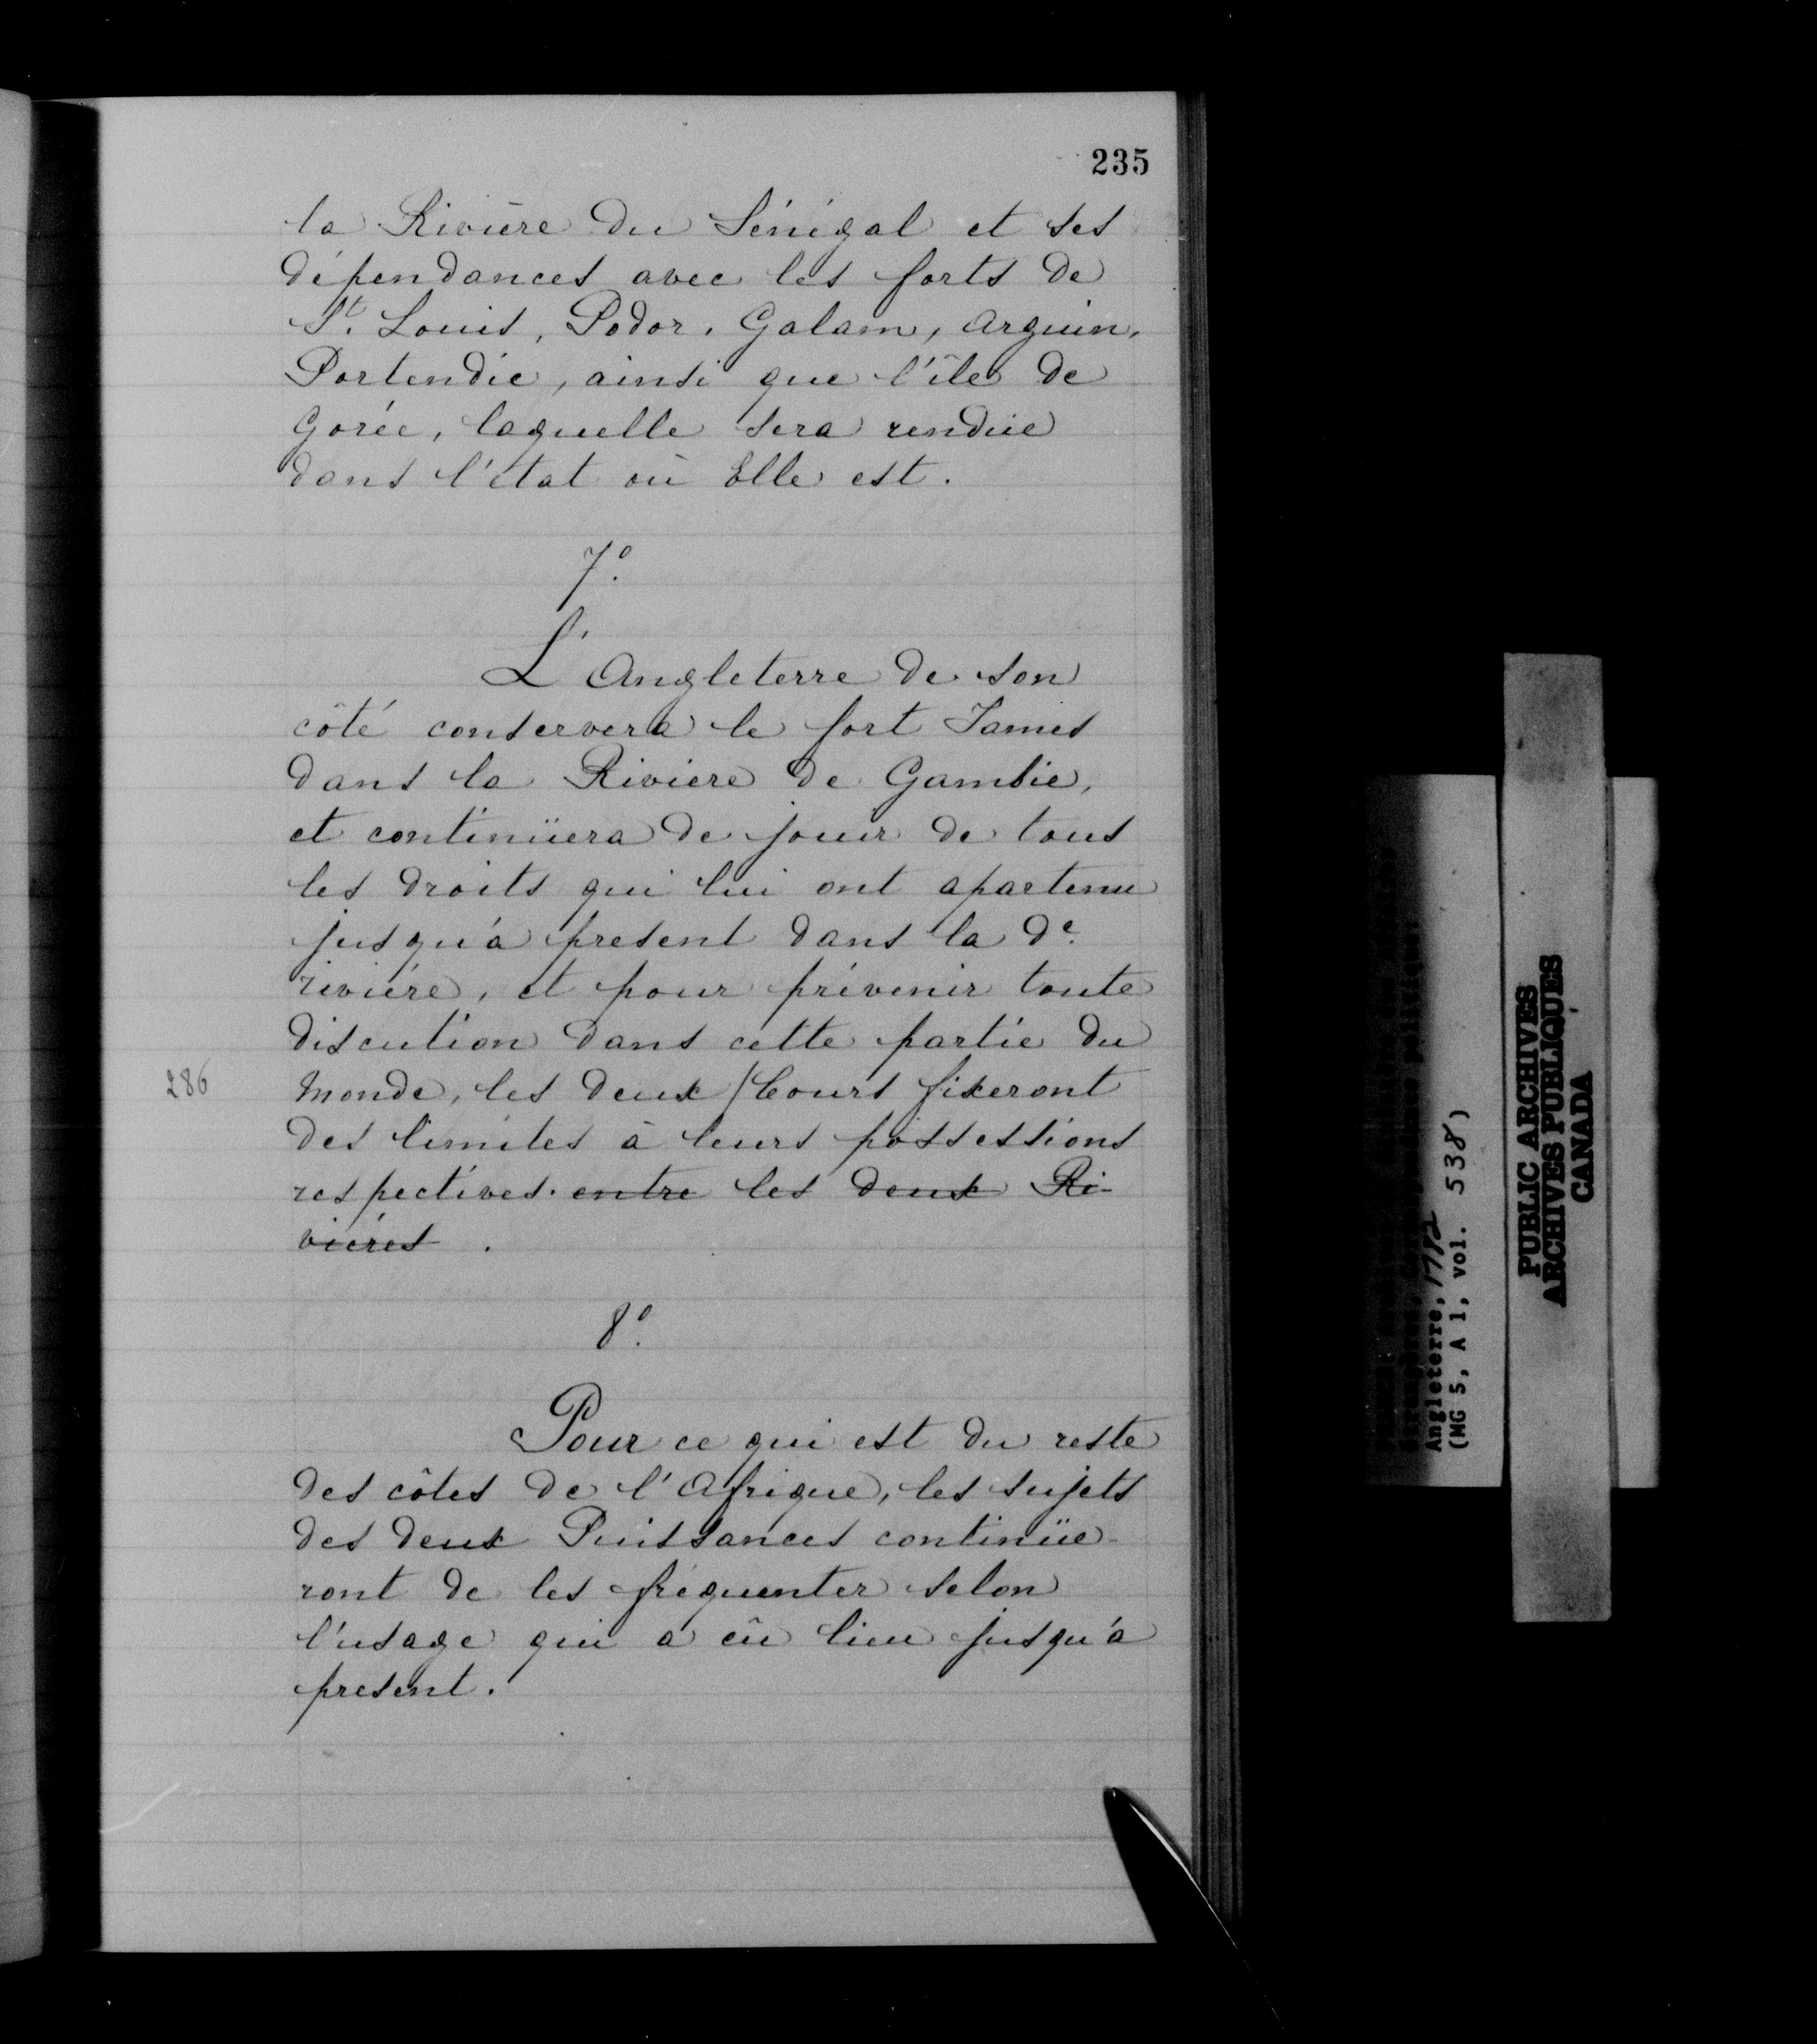 235
la Rivière du Sénégal et ses
dépendances avec les forts de
St. Louis, Podor, Galam, Arguin,
Portendic, ainsi que l'île de
Gorée, laquelle sera rendüe
dans l'état où Elle est.
7º.
L'Angleterre de son
côté conservera le fort James
dans la Riviere de Gambie,
et continüera de jouir de tous
les droits qui lui ont apartenu
jusqu'à present dans la de.
rivière, et pour prévenir toute
discution dans cette partie du
286
monde, les deux / Cours fixeront
des limites à leurs possessions
respectives. entre les deux Ri-
vières.
8º.
Pour ce qui est du reste
des côtes de l'Afrique, les sujets
des deux Puissances continüe-
ront de les fréquenter selon
l'usage qui a eû lieu jusqu'à
present.
Angleterre, 1782
(MG 5, A 1, vol. 538)
PUBLIC ARCHIVES
ARCHIVES PUBLIQUES
CANADA